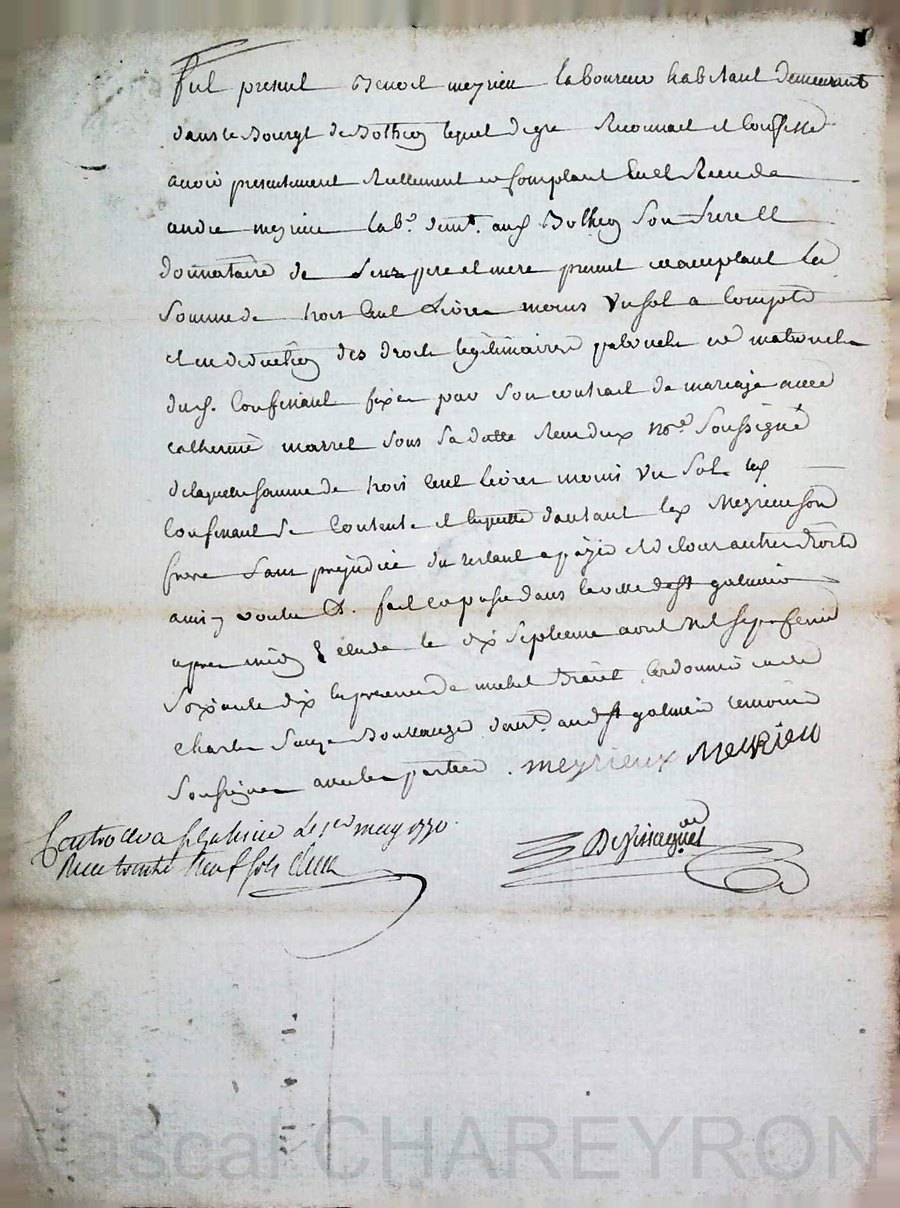 Fut present Benoit meyrieu laboureur habitant demeurant
dans le Bourgt de Botheon lequel de gre Reconnoit et Confesse
avoir presentement Reellement en Comptant Eu et Receu de
andre meyrieu lab.r demt. aud Botheon Son frere et
donnataire de Leurs pere et mere present acceptant la
Somme de trois Cent Livres moins Un sol a Compte
et en deduction des droits legitimaires paternels et maternels
dud. Confessant fixes par Son contrait de mariage avec
Catherine marrel Sous Sa datte Receu dud no.re Soussigné
de laquelle somme de trois Cent livres moins un Sol led
Confessant Se Contente et en quitte d'autant led Meyrieu son
frere Sans prejudice du restant a païer et de leurs autres droits
ainsy voulu &. fait et passé dans la ville de St galmier
apres midy Etude le dix Septieme avril Mil Sept Cents
Soixante dix en presence de michel Cordonnier et de
Charles Boulanger demt. aud St galmier temoins
Soussignes avec les parties. meyrieux MeyRieu
Controllé a St galmier Le 1er may 1770.
Receu trente neuf sols